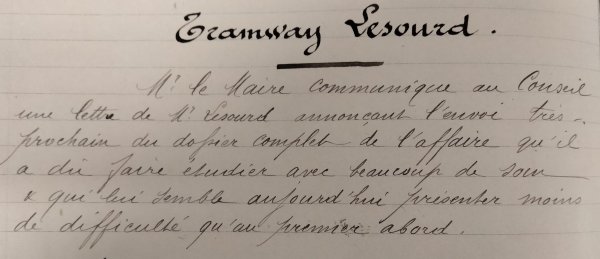 Tramway Lesourd.
Mr le Maire communique au Conseil
une lettre de Mr Lesourd annonçant l'envoi très-
prochain du dossier complet de l'affaire qu'il
a dû faire étudier avec beaucoup de soin
& qui lui semble aujourd'hui présenter moins
de difficulté qu'au premier abord.